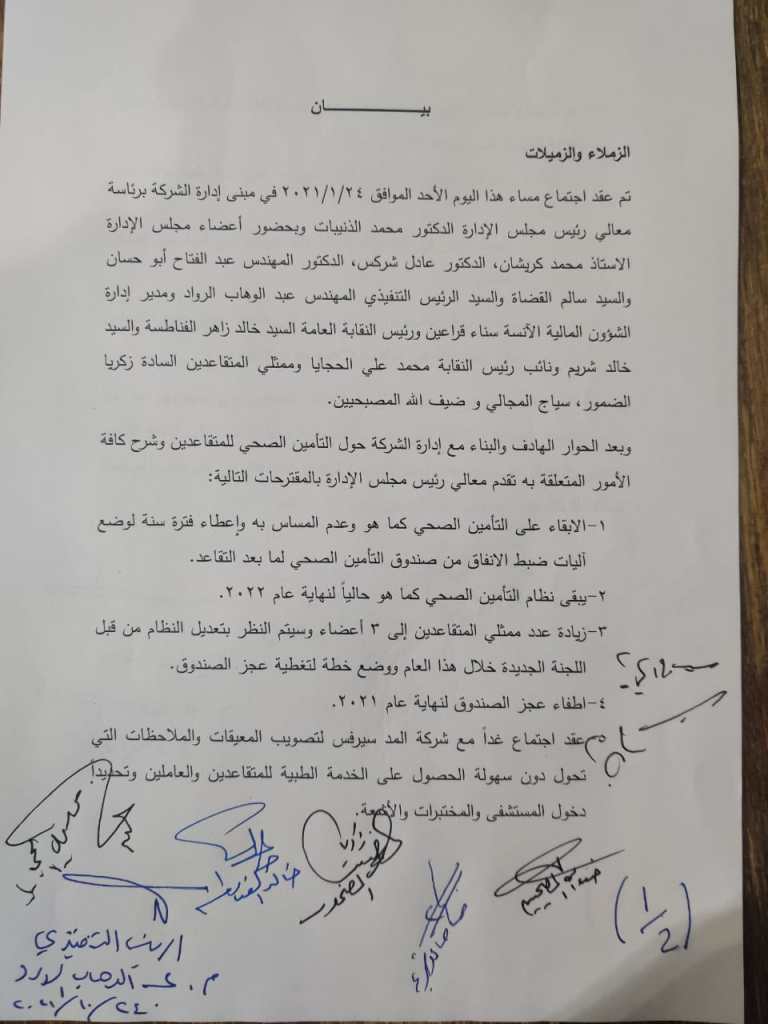 بيـــــــــــــان
الزملاء والزميلات
تم عقد اجتماع مساء هذا اليوم الأحد الموافق ٢٠٢١/١/٢٤ في مبنى إدارة الشركة برئاسة
معالي رئيس مجلس الإدارة الدكتور محمد الذنيبات وبحضور أعضاء مجلس الإدارة
الاستاذ محمد كريشان، الدكتور عادل شركس، الدكتور المهندس عبد الفتاح أبو حسان
والسيد سالم القضاة والسيد الرئيس التنفيذي المهندس عبد الوهاب الرواد ومدير إدارة
الشؤون المالية الآنسة سناء قراعين ورئيس النقابة العامة السيد خالد زاهر الفناطسة والسيد
خالد شريم ونائب رئيس النقابة محمد علي الحجايا وممثلي المتقاعدين السادة زكريا
الضمور، سياج المجالي و ضيف الله المصبحيين.
وبعد الحوار الهادف والبناء مع إدارة الشركة حول التأمين الصحي للمتقاعدين وشرح كافة
الأمور المتعلقة به تقدم معالي رئيس مجلس الإدارة بالمقترحات التالية:
١-الابقاء على التأمين الصحي كما هو وعدم المساس به وإعطاء فترة سنة لوضع
آليات ضبط الانفاق من صندوق التأمين الصحي لما بعد التقاعد.
٢-يبقى نظام التأمين الصحي كما هو حالياً لنهاية عام ٢٠٢٢.
٣-زيادة عدد ممثلي المتقاعدين إلى ٣ أعضاء وسيتم النظر بتعديل النظام من قبل
اللجنة الجديدة خلال هذا العام ووضع خطة لتغطية عجز الصندوق.
٤-اطفاء عجز الصندوق لنهاية عام ٢٠٢١.
عقد اجتماع غداً مع شركة المد سيرفس لتصويب المعيقات والملاحظات التي
تحول دون سهولة الحصول على الخدمة الطبية للمتقاعدين والعاملين وتحديداً
دخول المستشفى والمختبرات والأشعة.
(1/2)